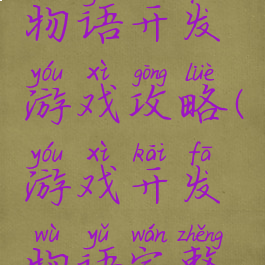 物语开发
yóu xì gōng lüè
游戏攻略(
yóu xì kāi fā
游戏开发
wù yǔ wán zhěng
物语完整